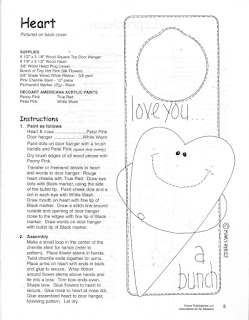 Heart
Pictured on back cover
SUPPLIES
8 1/2" x 3 1/8" Wood Square Top Door Hanger
4 1/2" x 3 1/2" Wood Heart
3/8" Wood Head Plug (nose)
Bunch of Tiny Hot Pink Silk Flowers
5/8" Sheer Wired White Ribbon - 3/8 yard
Pink Chenille Stem - 12" piece
Permanent Marker (Zig) - Black
DECOART AMERICANA ACRYLIC PAINTS
Peony Pink True Red
Petal Pink White Wash
Instructions
1. Paint as follows
Heart & nose Petal Pink
Door hanger White Wash
Paint dots on door hanger with a brush
handle and Petal Pink
Dry brush edges of all wood pieces with
Peony Pink.
Transfer or freehand details to heart
and words to door hanger. Rouge
heart cheeks with True Red. Draw eye
dots with Black marker, using the side
of the bullet tip. Paint cheek dots and a
dot in each eye with White Wash.
Draw mouth on heart with fine tip of
Black marker. Draw a stitch line around
outside and opening of door hanger
close to the edges with fine tip of Black
marker. Draw words on door hanger
with bullet tip of Black marker.
2. Assembly
Make a small loop in the center of the
chenille stem for hands (refer to
pattern). Place flower stems in hands.
Twist chenille ends together for arms.
Place arms on heart with ends in back
and glue to secure. Wrap ribbon
around flower stems above hands and
tie into a bow. Trim bow ends even.
Shape bow. Glue flowers to heart to
secure. Glue nose to heart at nose dot.
Glue assembled heart to door hanger,
following pattern. Let dry.
love you...
a
bunch